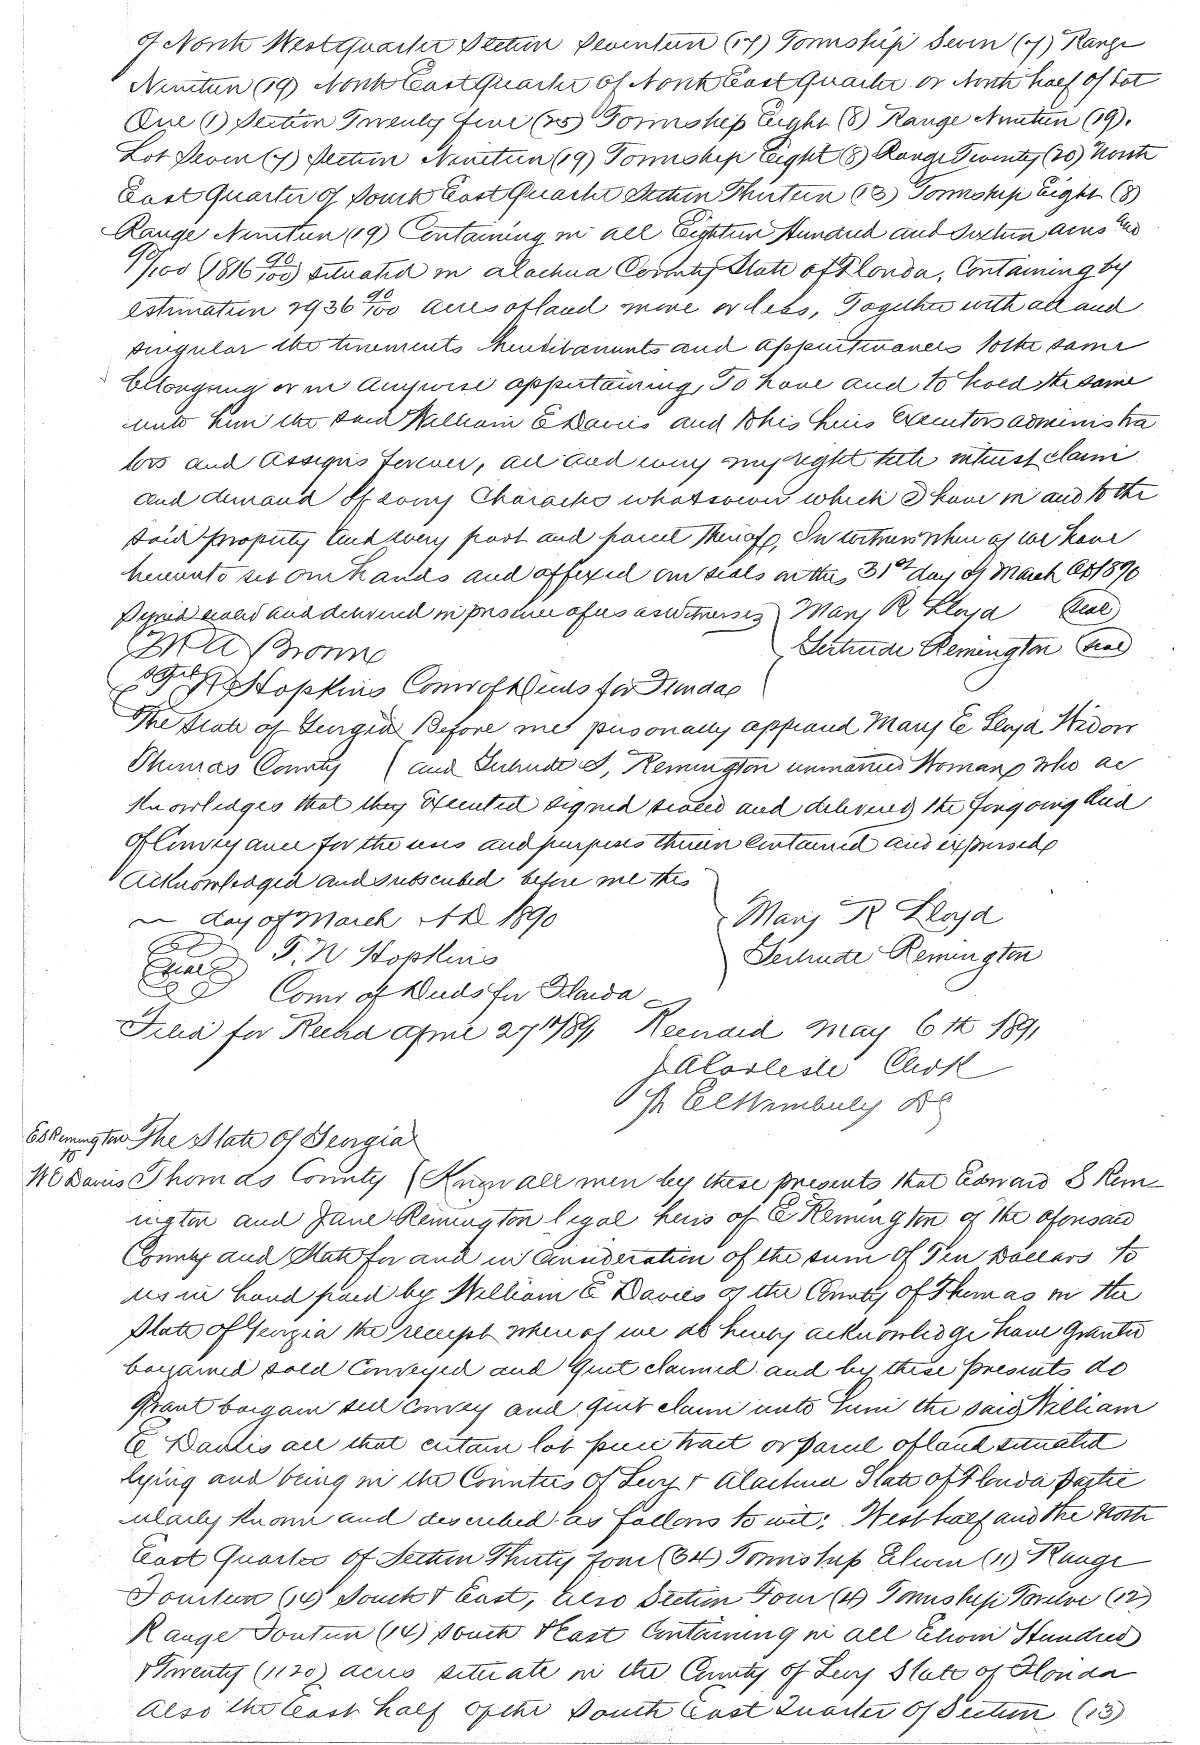 of North West Quarter Section Seventeen (17) Township Seven (7) Range
Nineteen (19) North East Quarter of North East Quarter or North half of Lot
One (1) Section Twenty five (25) Township Eight (8) Range Nineteen (19).
Lot Seven (7) Section Nineteen (19) Township Eight (8) Range Twenty (20) North
East Quarter of South East Quarter Section Thirteen (13) Township Eight (8)
Range Nineteen (19) Containing in all Eighteen Hundred and Sixteen acres and
90/100 (1816 90/100) situated in Alachua County State of Florida, Containing by
estimation 2936 90/100 acres of land more or less, Together with all and
singular the tenements hereditaments and appurtenances to the same
belonging or in anywise appertaining, To have and to hold the same
unto him the said William E Davies and to his heirs Executors administra
tors and assigns forever, all and every my right title interest claim
and demand of every Character whatsoever which I have in and to the
said property and every part and parcel thereof, In witness whereof we have
hereunto set our hands and affixed our seals on this 31st day of March AD 1890
Signed sealed and delivered in presence of us as witnesses Mary R Lloyd (seal)
Gertrude Remington (seal)
Hopkins Comr of Deeds for Florida
The State of Georgia Before me personally appeared Mary E Lloyd Widow
Thomas County and Gertrude S, Remington unmarried Woman who ac
knowledges that they Executed signed sealed and delivered the foregoing Deed
of Conveyance for the uses and purposes therein Contained and expressed
Acknowledged and subscribed before me this
— day of March A D 1890 Mary R Lloyd
(seal) T. N Hopkins Gertrude Remington
Comr of Deeds for Florida
Filed for Record April 27th/891 Recorded May 6th 1891
J A Carlisle Clerk
Pr E C Wimberly D C
E S Remington The State of Georgia
to
W E Davies Thomas County (Know all men by these presents that Edward S Rem-
ington and Jane Remington legal heirs of E Remington of the aforesaid
County and State for and in Consideration of the sum of Ten Dollars to
us in hand paid by William E Davies of the County of Thomas in the
State of Georgia the receipt whereof we do hereby acknowledge have Granted
bargained sold Conveyed and Quit claimed and by these presents do
Grant bargain sell Convey and quit claim unto him the said William
E Davies all that certain lot piece tract or parcel of land situated
lying and being in the Counties of Levy & Alachua State of Florida partic
ularly known and described as follows to wit: West half and the North
East Quarter of Section Thirty four (34) Township Eleven (11) Range
Fourteen (14) South & East, also Section Four (4) Township Twelve (12)
Range Fourteen (14) South & East Containing in all Eleven Hundred
& Twenty (1120) acres situate in the County of Levy State of Florida
Also the East half of the South East Quarter of Section (13)